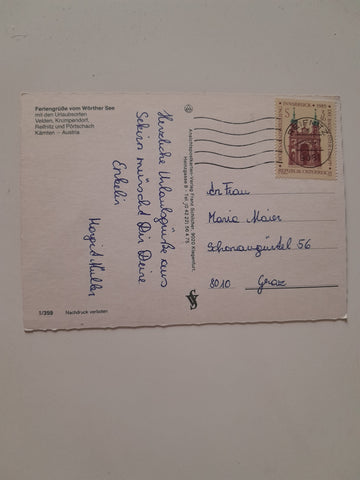 Feriengrüße vom Wörther See
mit den Urlaubsorten
Velden, Krumpendorf,
Reifnitz und Pörtschach
Kärnten – Austria
Herzliche Urlaubsgrüße aus
Sekirn wünscht Dir Deine
Enkelin
Margit Müller
1/399
Nachdruck verboten
Ansichtspostkarten-Verlag Franz Schilcher, 9020 Klagenfurt,
REPUBLIK ÖSTERREICH
An Frau
Maria Maier
Schönaugürtel 56
8010 Graz